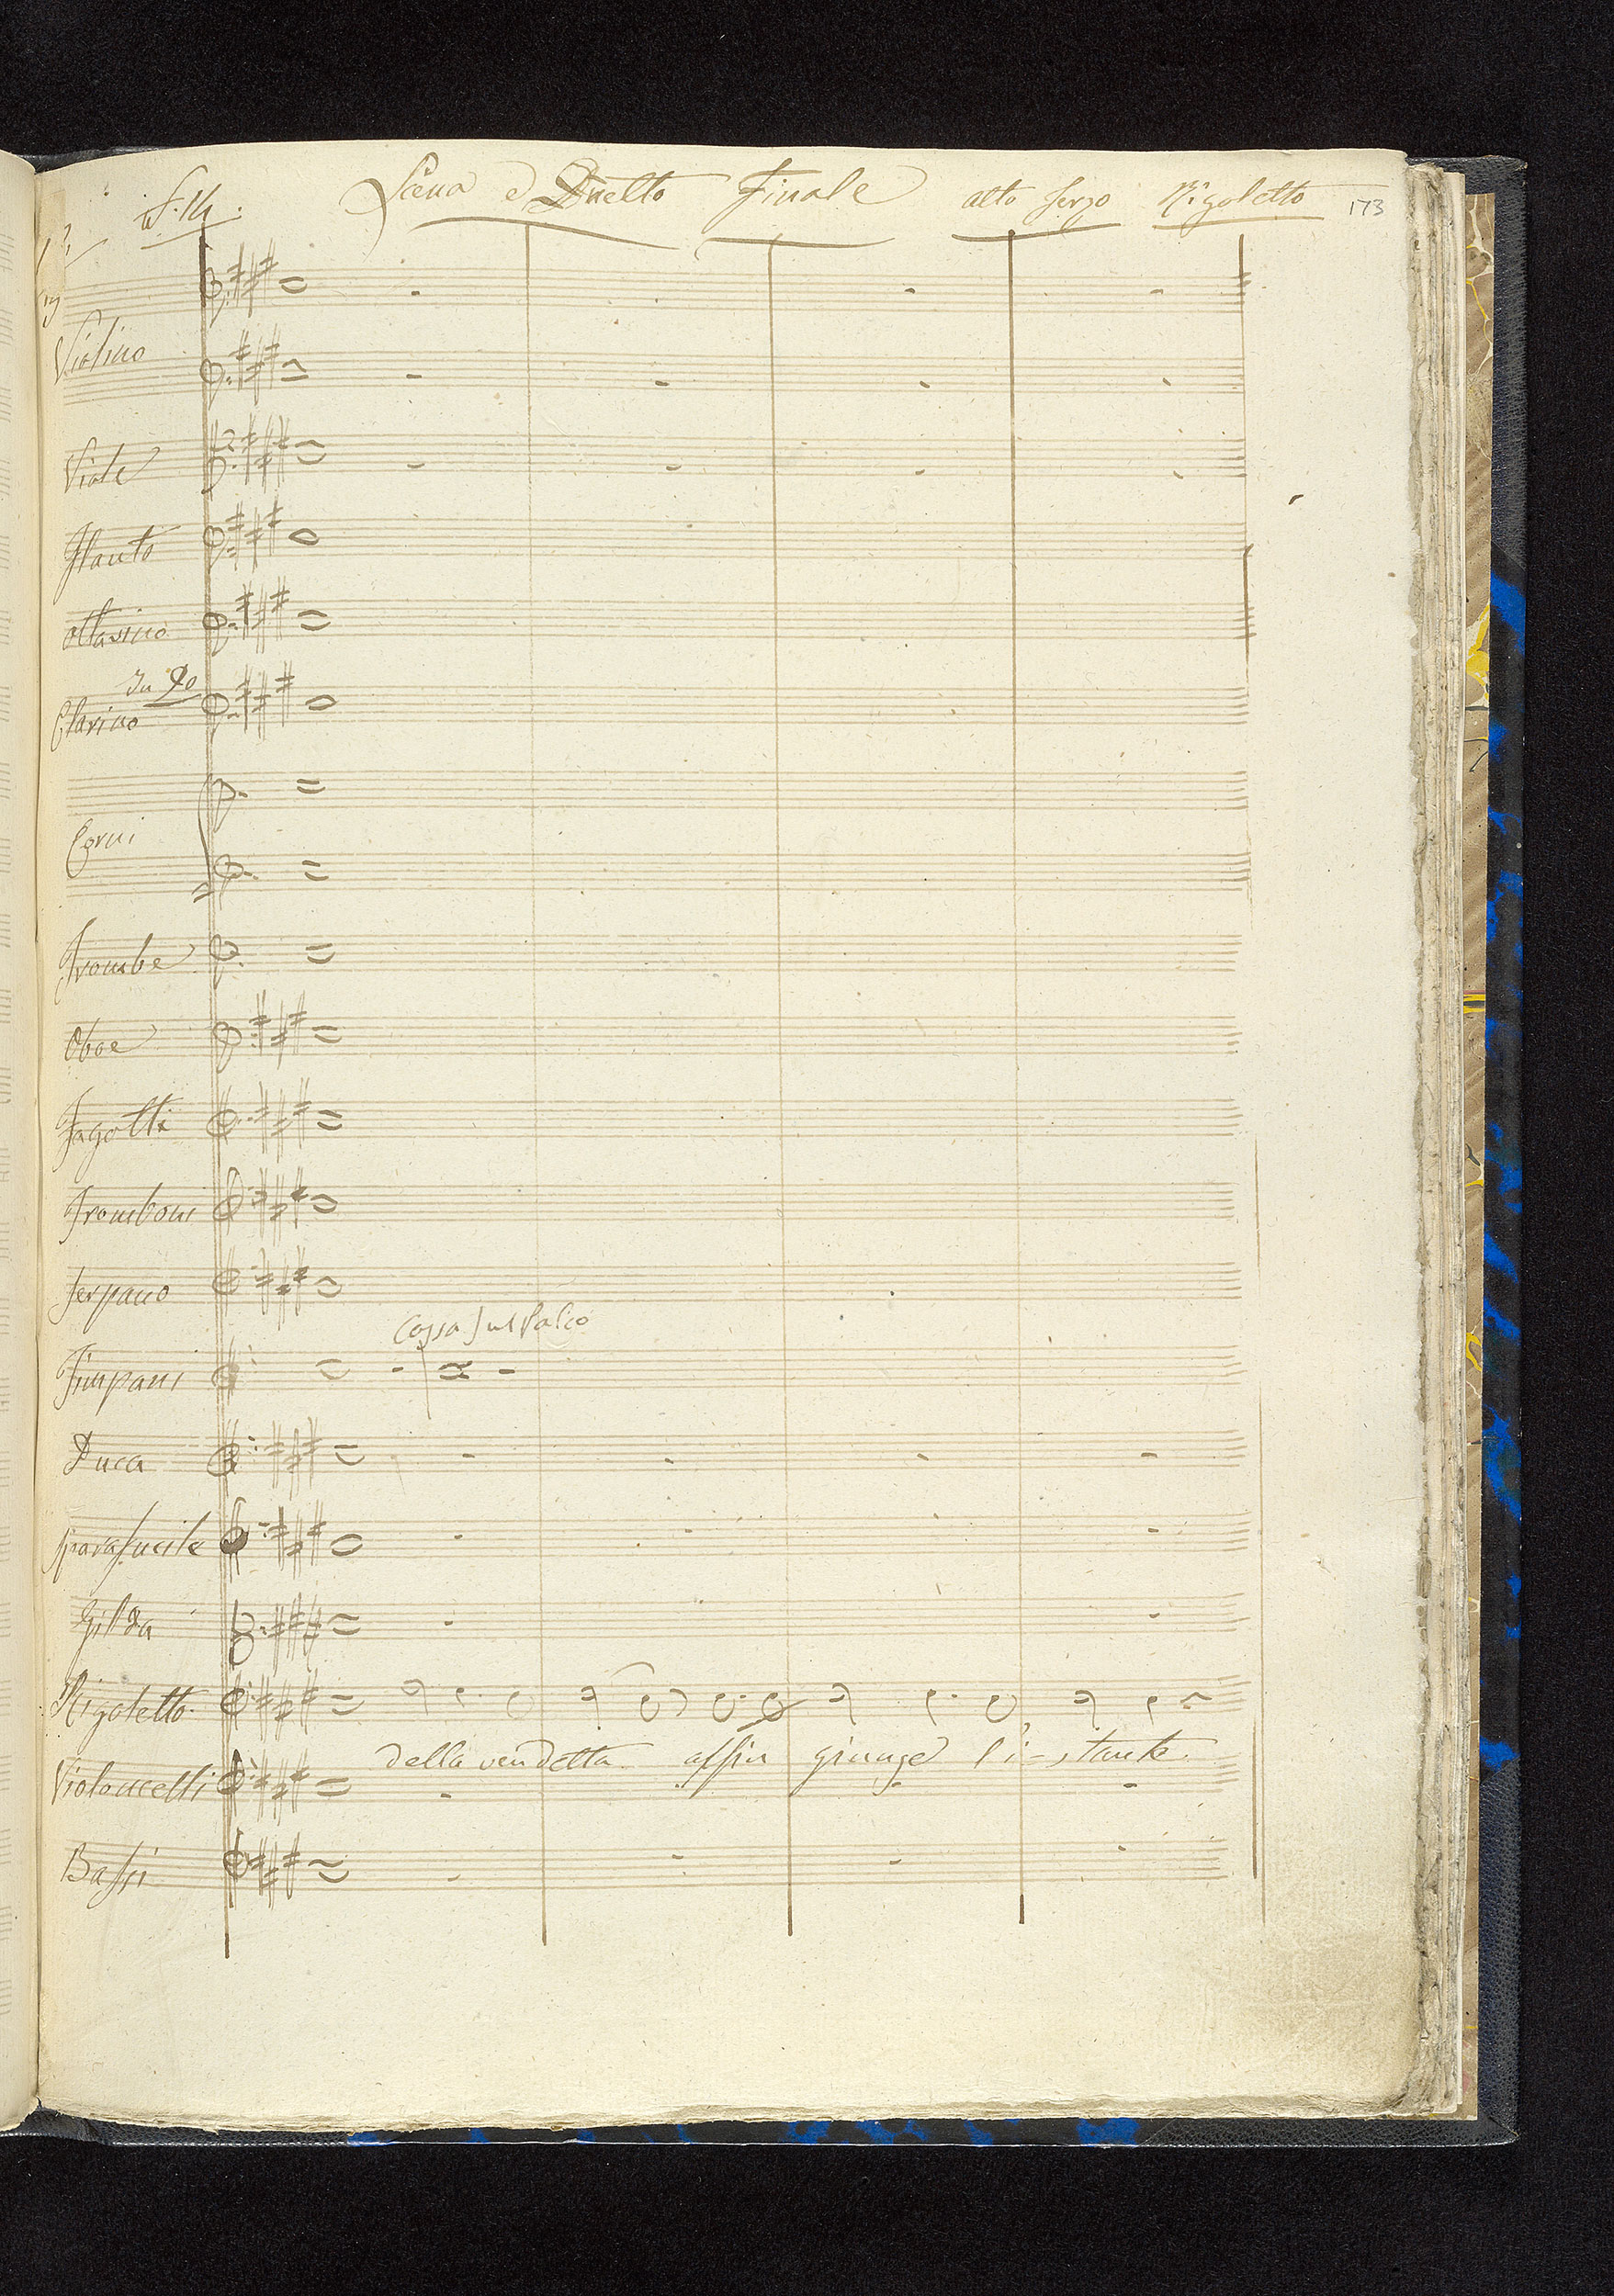 Scena e Duetto Finale atto terzo Rigoletto 173
Violino
Viole
Flauto
ottavino
In Do
Clarino
Corni
Trombe
Oboe
Fagotti
Tromboni
Serpano
Cassa sul Palco
Timpani
Duca
Sparafucile
Gilda
Rigoletto.
della vendetta alfin giunge l'i-stante
Violoncelli
Bassi